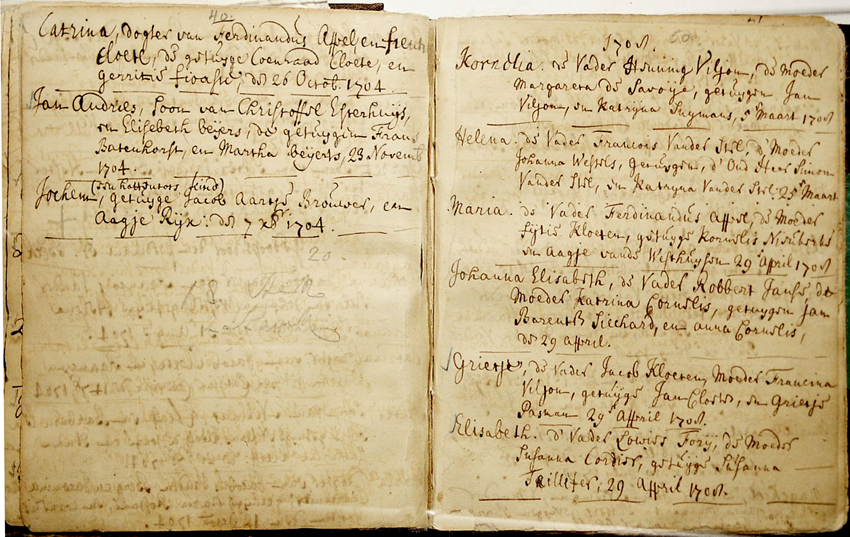 40.
Catrina, dogter van Ferdinandus Appel, en
Cloete, de getuyge Coenraad Cloete, en
gerritie, des 26 Octob. 1704.
Jan Andries, Soon van Christoffel Esterhuijs,
en Elisabeth Beyers, de getuygen Frans
Batenhorst, en Martha Beyerts, 23 Novemb
1704.
Jochem, (een hottentots kind)
getuyge Jacob Aartse Brouwer, en
Aagje Rijx: des 7 xbr 1704.
20.
1708.
60
Kornelia. de Vader Henning Viljon, de Moeder
Margareta de Savoije, getuygen Jan
Viljon, en Katryna Snijmans, 5 Maart 1708
Helena. de Vader Francois Vander Stel, d' Moeder
Johanna Wessels, getuygen, d' Oud Heer Simon
Vander Stel, en Katryna Vander Stel. 25 Maart
Maria. de Vader Ferdinandus Appel, de Moeder
Kloeten, getuyge Kornelis
en Aagje vande Westhuysen 29 April 1708
Johanna Elisabeth, de Vader Robbert Janse, de
Moeder Katrina Cornelis, getuygen Jan
Barents, en anna Cornelis,
de 29 april.
Grietje, de Vader Jacob Kloeten, Moeder Francina
Viljon, getuyge Jan Cloete, en Grietje
Pasman 29 April 1708.
Elisabeth. d' Vader Lowies Fory, de Moeder
Susanna Cordier, getuyge Susanna
Taillifer, 29 April 1708.